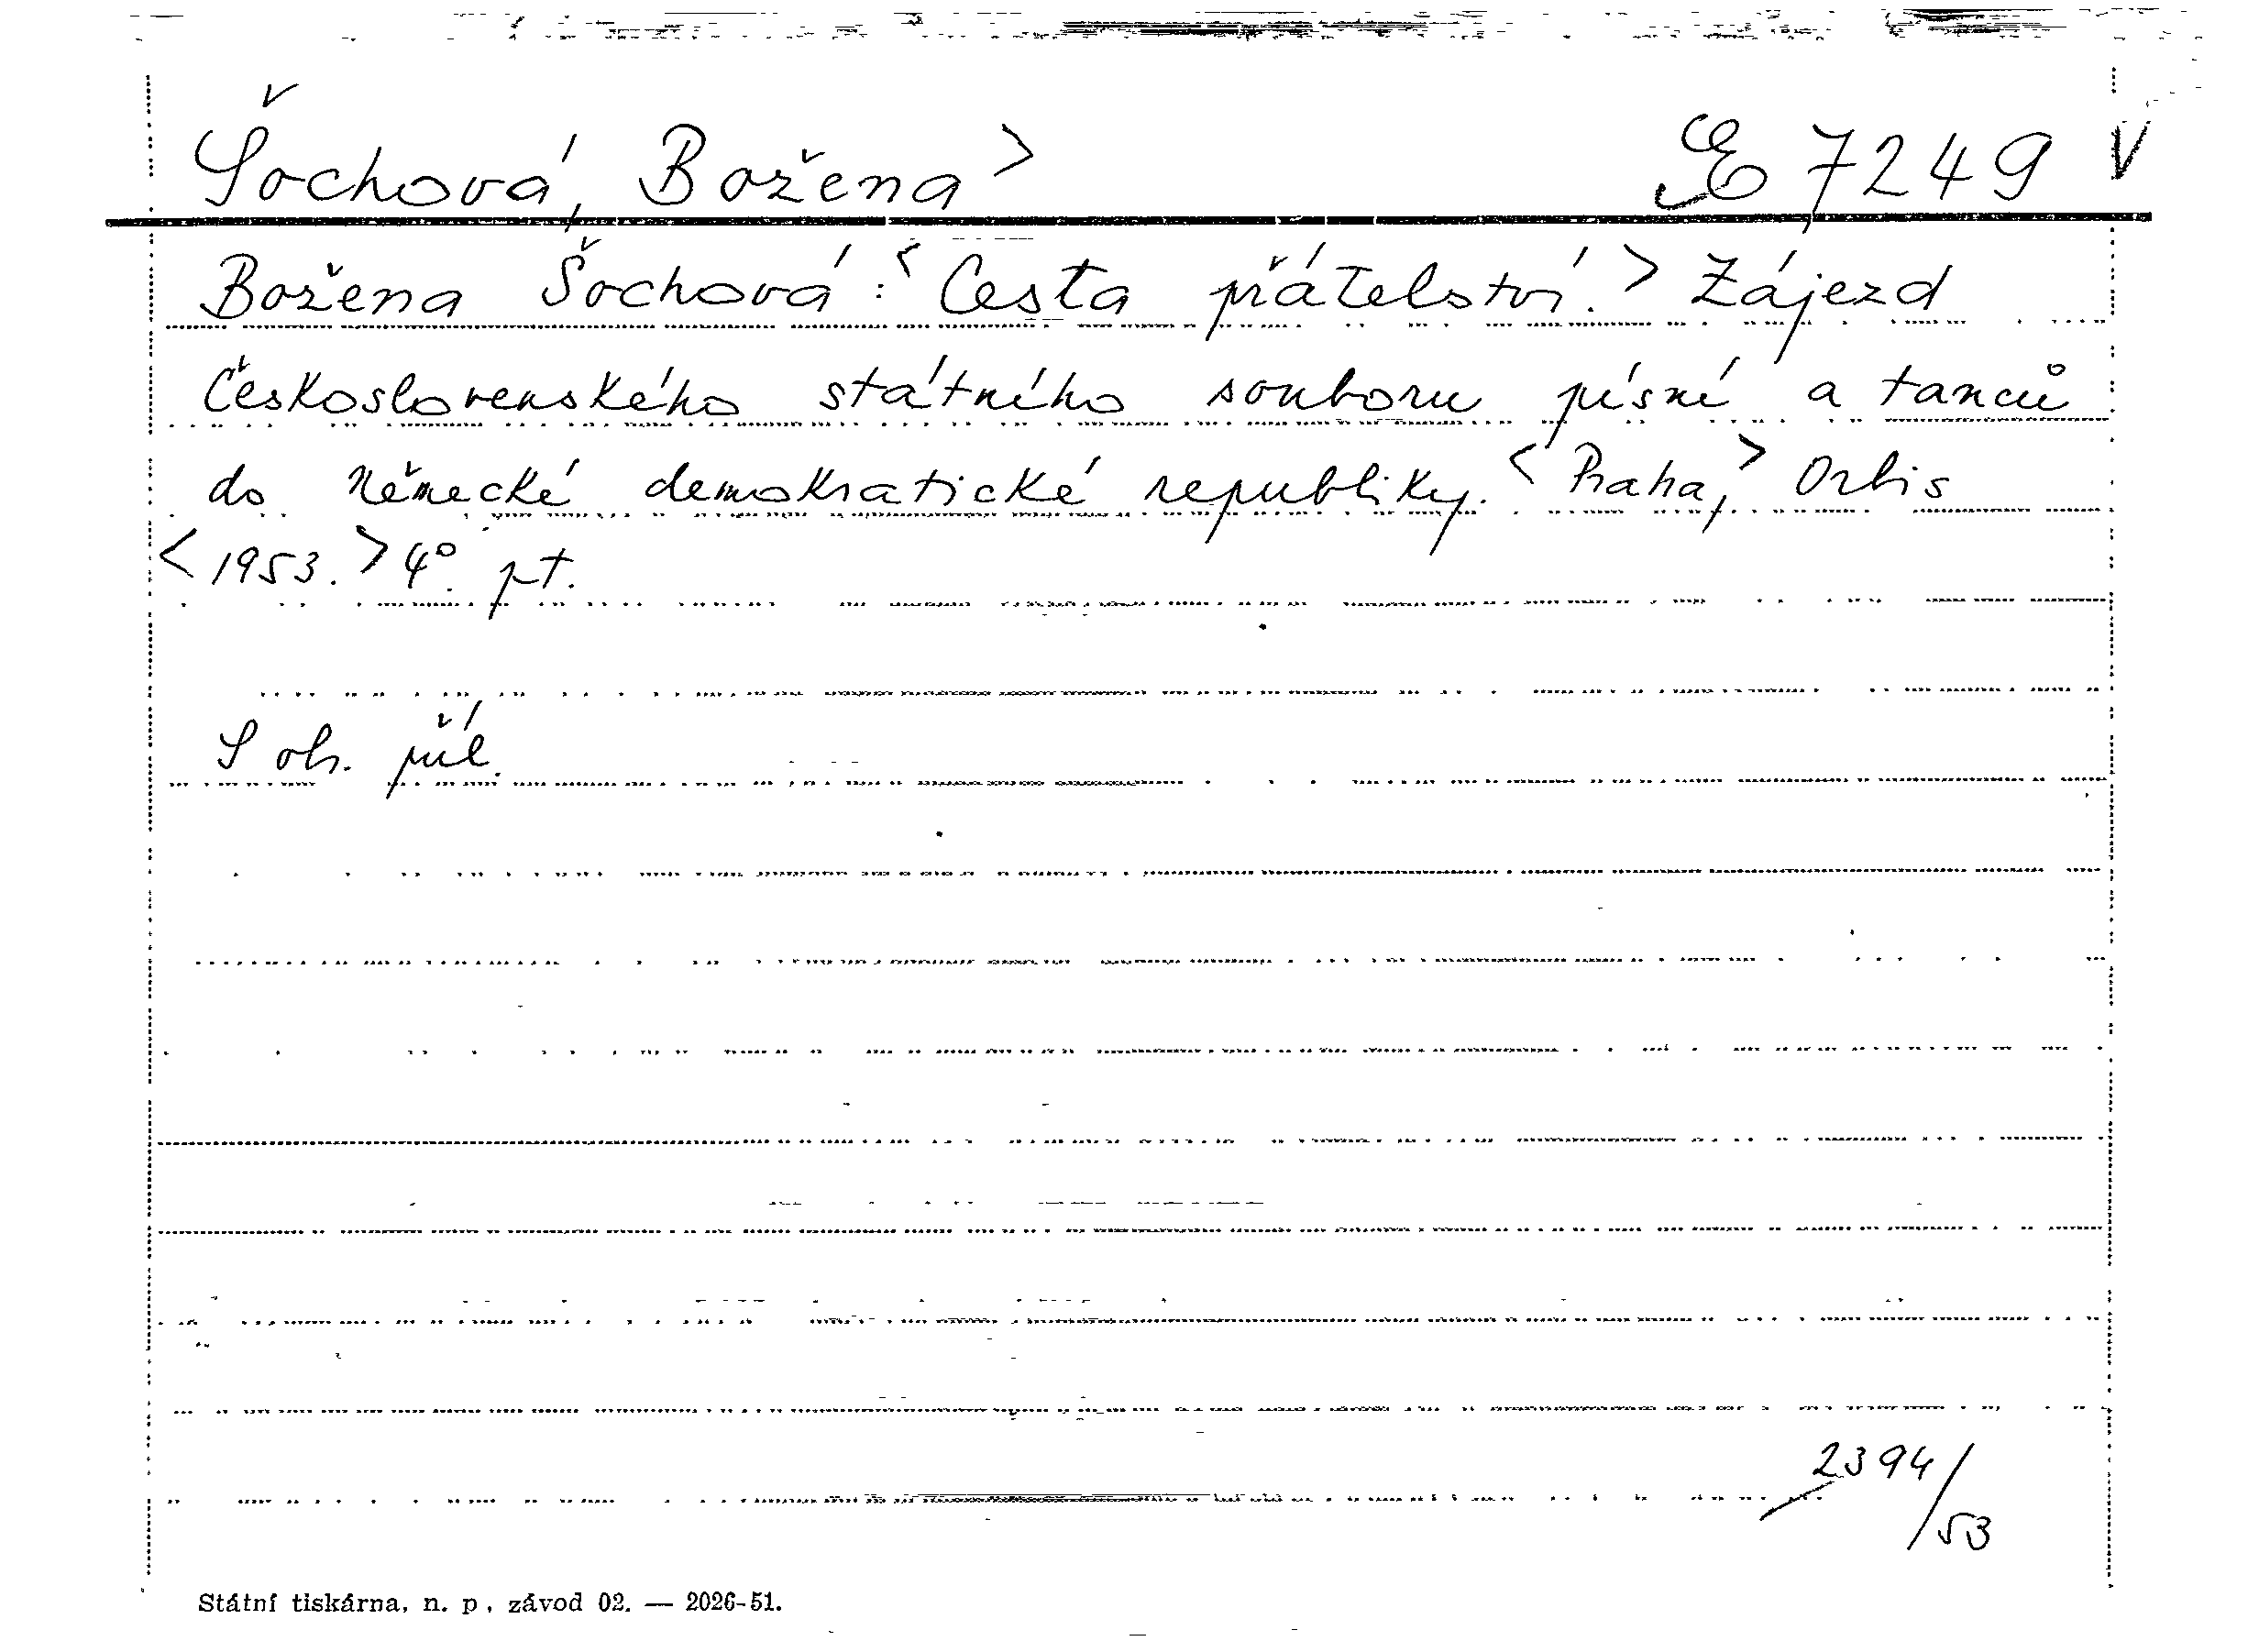 Šochová, Božena > E 7249 V
Božena Šochová: < Cesta přátelství. > Zájezd
Československého státního souboru písní a tanců
do Německé demokratické republiky. < Praha, > Orbis
< 1953. > 4°. pt.
S obr. příl.
2394/53
Státní tiskárna, n. p., závod 02. — 2026-51.